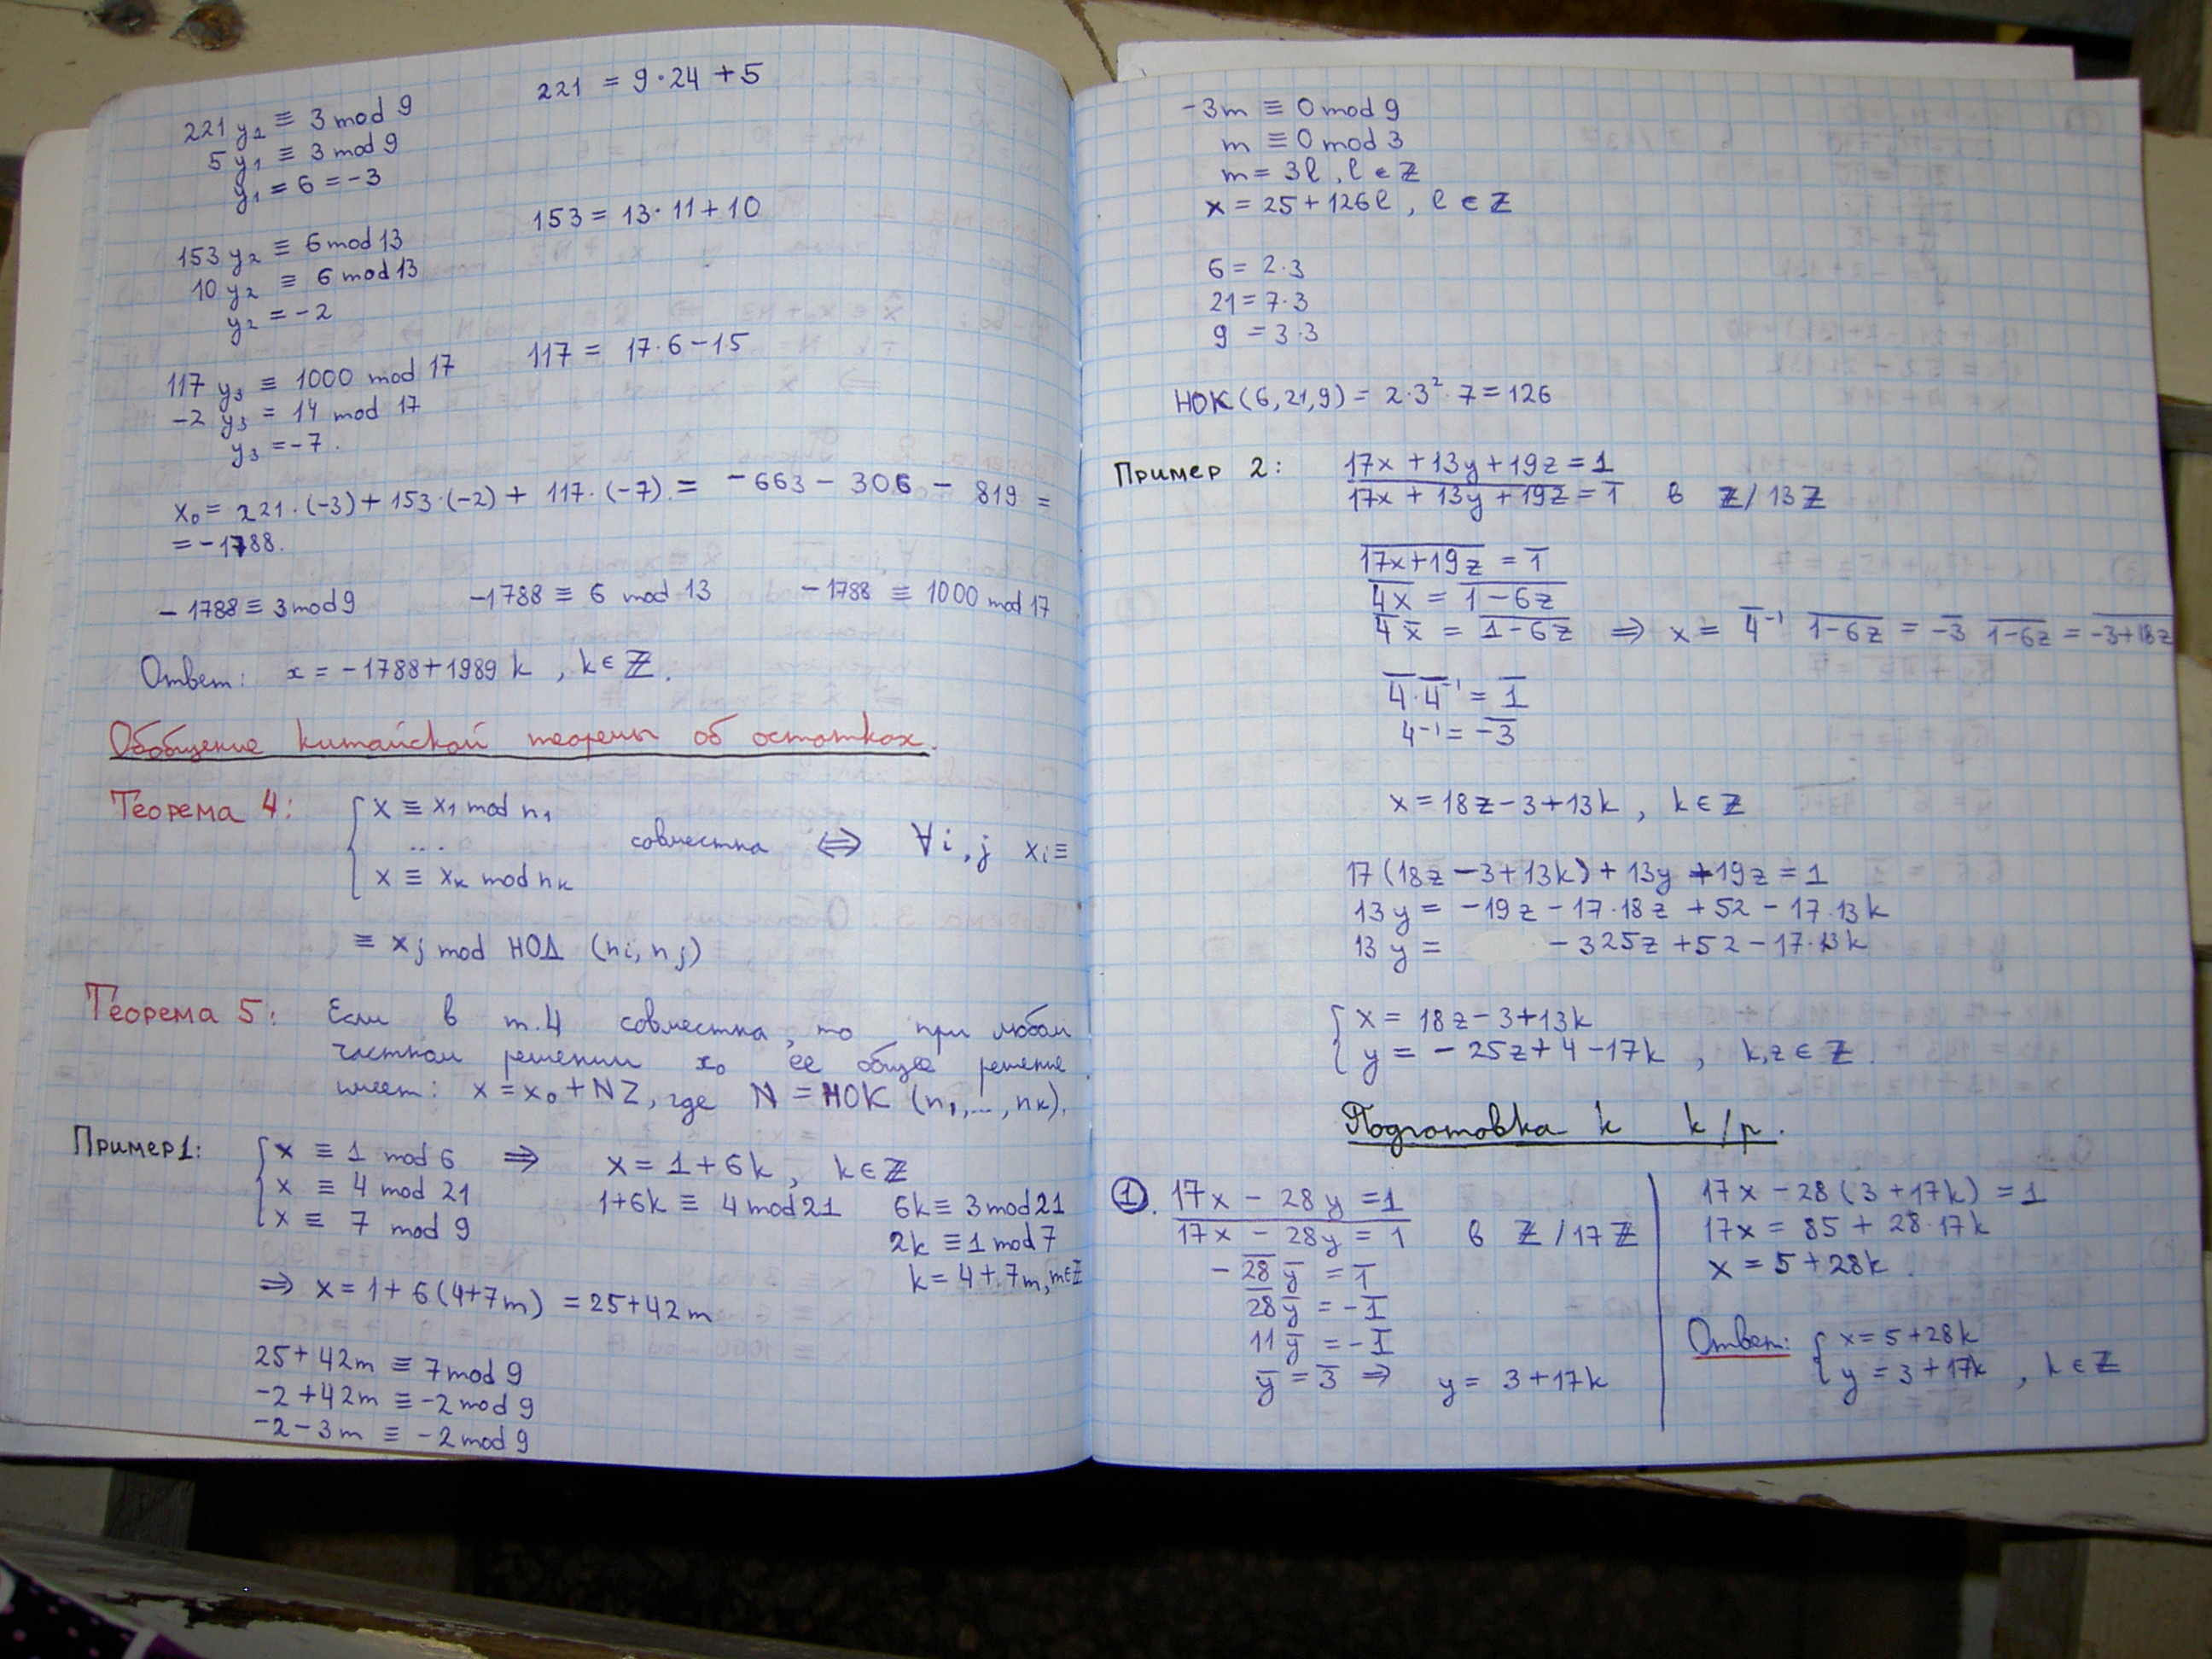 221 = 9·24 + 5
221 y₁ ≡ 3 mod 9
5 y₁ ≡ 3 mod 9
y₁ = 6 = -3
153 = 13·11 + 10
153 y₂ ≡ 6 mod 13
10 y₂ ≡ 6 mod 13
y₂ = -2
117 = 17·6 - 15
117 y₃ ≡ 1000 mod 17
-2 y₃ = 14 mod 17
y₃ = -7.
x₀ = 221·(-3) + 153·(-2) + 117·(-7) = -663 - 306 - 819 =
= -1788.
-1788 ≡ 3 mod 9 -1788 ≡ 6 mod 13 -1788 ≡ 1000 mod 17
Ответ: x = -1788 + 1989 k , k ∈ ℤ.
Обобщение китайской теоремы об остатках.
Теорема 4: { x ≡ x₁ mod n₁
... совместна ⇔ ∀i, j xᵢ ≡
x ≡ xₖ mod nₖ
≡ xⱼ mod НОД (nᵢ, nⱼ)
Теорема 5: Если в т.4 совместна, то при любом
частном решении x₀ ее общее решение
имеет: x = x₀ + NZ, где N = НОК (n₁, ..., nₖ).
Пример 1: { x ≡ 1 mod 6 ⇒ x = 1 + 6k, k ∈ ℤ
x ≡ 4 mod 21 1+6k ≡ 4 mod 21 6k ≡ 3 mod 21
x ≡ 7 mod 9 2k ≡ 1 mod 7
k = 4 + 7m, m ∈ ℤ
⇒ x = 1 + 6(4+7m) = 25 + 42m
25 + 42m ≡ 7 mod 9
-2 + 42m ≡ -2 mod 9
-2 - 3m ≡ -2 mod 9
-3m ≡ 0 mod 9
m ≡ 0 mod 3
m = 3l, l ∈ ℤ
x = 25 + 126l , l ∈ ℤ
6 = 2·3
21 = 7·3
9 = 3·3
НОК (6, 21, 9) = 2·3²·7 = 126
Пример 2: 17x + 13y + 19z = 1
\overline{17x + 13y + 19z} = \overline{1} в ℤ/13ℤ
\overline{17x + 19z} = \overline{1}
\overline{4x} = \overline{1 - 6z}
\overline{4} \overline{x} = \overline{1 - 6z} ⇒ x = \overline{4}⁻¹ \overline{1 - 6z} = \overline{-3} \overline{1 - 6z} = \overline{-3 + 18z}
\overline{4}·\overline{4}⁻¹ = \overline{1}
4⁻¹ = \overline{-3}
x = 18z - 3 + 13k , k ∈ ℤ
17(18z - 3 + 13k) + 13y + 19z = 1
13y = -19z - 17·18z + 52 - 17·13k
13y = -325z + 52 - 17·13k
{ x = 18z - 3 + 13k
y = -25z + 4 - 17k , k, z ∈ ℤ.
Подготовка к к/р.
①. 17x - 28y = 1
\overline{17x - 28y} = 1 в ℤ/17ℤ
-\overline{28} \overline{y} = \overline{1}
\overline{28} \overline{y} = -\overline{1}
11 \overline{y} = -\overline{1}
\overline{y} = \overline{3} ⇒ y = 3 + 17k
17x - 28(3 + 17k) = 1
17x = 85 + 28·17k
x = 5 + 28k.
Ответ: { x = 5 + 28k
y = 3 + 17k , k ∈ ℤ